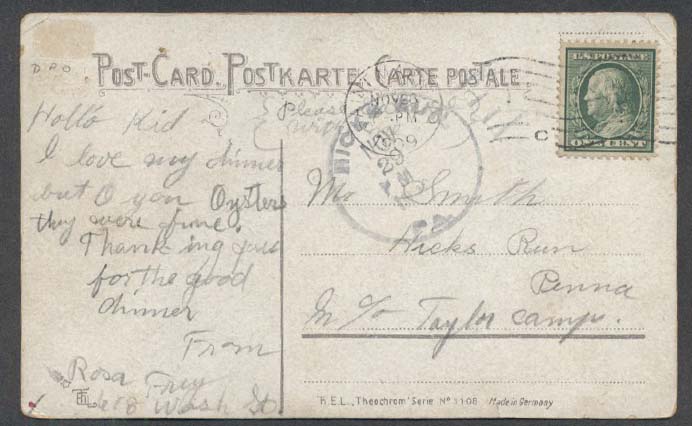 D P O
POST-CARD. POSTKARTE. CARTE POSTALE
U.S. POSTAGE
ONE CENT
Hollo Kid
I love my dinner
but O you Oysters
they were fine.
Thanking you
for the good
dinner
From
Rosa Frey
618 Wash St.
Please
write
NOV
PM
1909
HICKS RUN
NOV
29
A.M.
PA
C
Mr Smith
Hicks Run
Penna
In c/o Taylor camp.
H.E.L. „Theochrom" Serie Nº 1108 Made in Germany